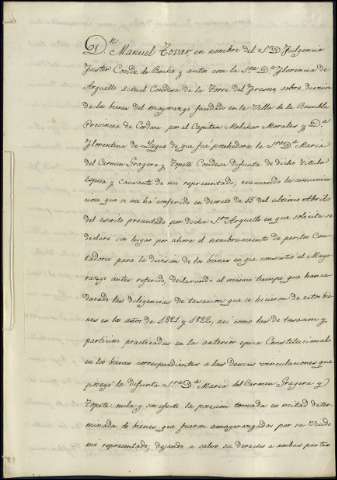 Dn. Manuel Tovar en nombre del Sr. D. Fulgencio
Fuster Conde de Roche y autos con la Sra. Da. Florencia de
Arguello actual Condesa de la Torre del Fresno, sobre division
de los bienes del mayorazgo fundado en la Villa de la Rambla
Provincia de Cordova por el Capitan Melchor Morales y Da.
Florentina de de que fué poseedora la Sra. Da. Maria
del Carmen Fragera y Topete Condesa difunta de dicho titulo
esposa y causante de mi representado, evacuando la comunica-
cion que se me há conferido en decreto de 15 del ultimo Abril
del escrito presentado por dicha Sra. Arguello en que solicita se
declare sin lugar por ahora el nombramiento de peritos Con-
tadores para la division de los bienes en que consistia el Mayo-
razgo antes referido, declarando al mismo tiempo que han ca-
ducado las diligencias de tasacion que se hicieron de estos bie-
nes en los años de 1821 y 1822, asi como las de tasacion y
particion practicadas en la anterior epoca Constitucional
en los bienes correspondientes a las demas vinculaciones que
poseyó la difunta Sra. Da. Maria del Carmen Fragera y
Topete nula y sin efecto la posesion tomada en mitad deter-
minada de bienes que fueron amayorazgados por su Viudo
mi representado, dejando a salvo su derecho a ambas partes